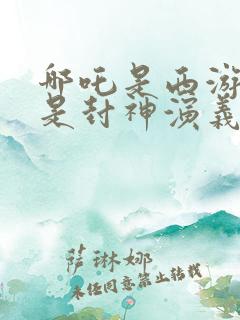 哪吒是西游
是封神演義
萨琳娜
未经同意禁止转载